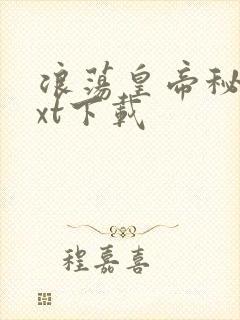 浪荡皇帝秘
xt下载
程嘉喜